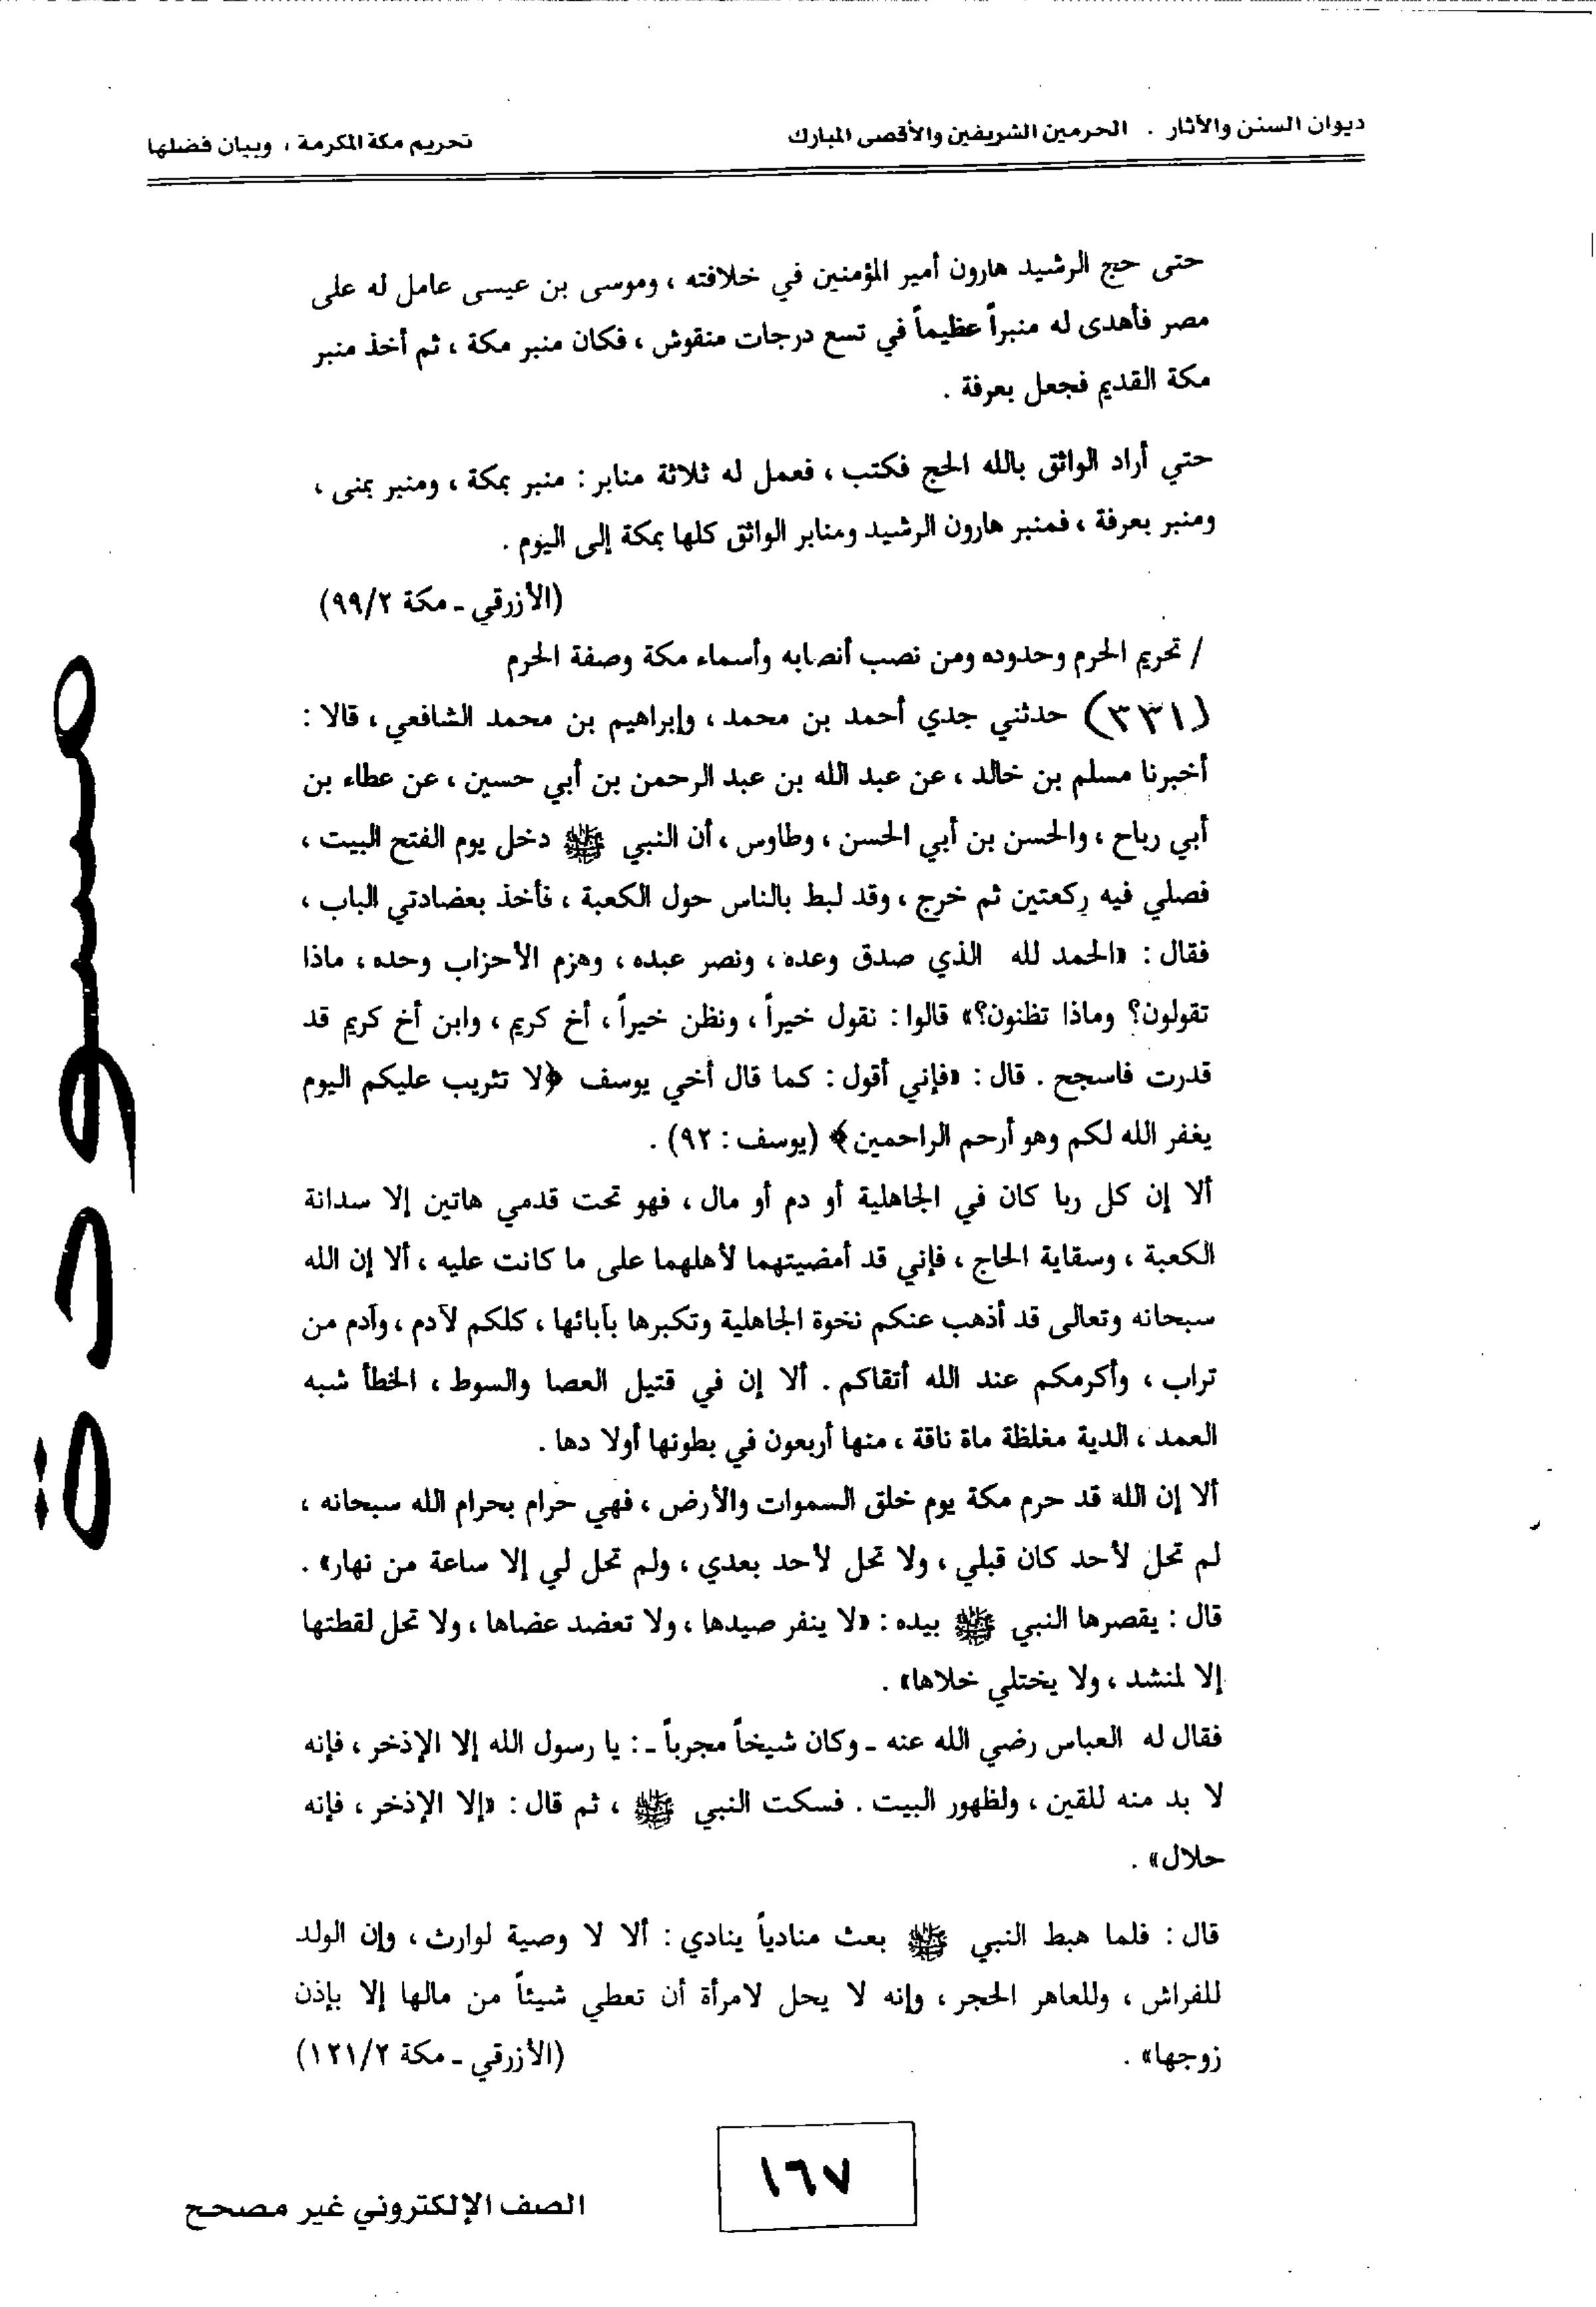 ديوان السنن والآثار . الحرمين الشريفين والأقصى المبارك
تحريم مكة المكرمة ، وبيان فضلها
حتى حج الرشيد هارون أمير المؤمنين في خلافته ، وموسى بن عيسى عامل له على
مصر فأهدى له منبراً عظيماً في تسع درجات منقوش ، فكان منبر مكة ، ثم أخذ منبر
مكة القديم فجعل بعرفة .
حتي أراد الواثق بالله الحج فكتب ، فعمل له ثلاثة منابر : منبر بمكة ، ومنبر بمنى ،
ومنبر بعرفة ، فمنبر هارون الرشيد ومنابر الواثق كلها بمكة إلى اليوم .
(الأزرقي ـ مكة ٩٩/٢)
/ تحريم الحرم وحدوده ومن نصب أنصابه وأسماء مكة وصفة الحرم
(٣٣١) حدثني جدي أحمد بن محمد ، وإبراهيم بن محمد الشافعي ، قالا :
أخبرنا مسلم بن خالد ، عن عبد الله بن عبد الرحمن بن أبي حسين ، عن عطاء بن
أبي رباح ، والحسن بن أبي الحسن ، وطاوس ، أن النبي ﷺ دخل يوم الفتح البيت ،
فصلي فيه ركعتين ثم خرج ، وقد لبط بالناس حول الكعبة ، فأخذ بعضادتي الباب ،
فقال : «الحمد لله الذي صدق وعده ، ونصر عبده ، وهزم الأحزاب وحده ، ماذا
تقولون؟ وماذا تظنون؟» قالوا : نقول خيراً ، ونظن خيراً ، أخ كريم ، وابن أخ كريم قد
قدرت فاسجح . قال : «فإني أقول : كما قال أخي يوسف ﴿لا تثريب عليكم اليوم
يغفر الله لكم وهو أرحم الراحمين﴾ (يوسف : ٩٢) .
ألا إن كل ربا كان في الجاهلية أو دم أو مال ، فهو تحت قدمي هاتين إلا سدانة
الكعبة ، وسقاية الحاج ، فإني قد أمضيتهما لأهلهما على ما كانت عليه ، ألا إن الله
سبحانه وتعالى قد أذهب عنكم نخوة الجاهلية وتكبرها بآبائها ، كلكم لآدم ، وآدم من
تراب ، وأكرمكم عند الله أتقاكم . ألا إن في قتيل العصا والسوط ، الخطأ شبه
العمد ، الدية مغلظة ماة ناقة ، منها أربعون في بطونها أولا دها .
ألا إن الله قد حرم مكة يوم خلق السموات والأرض ، فهي حرام بحرام الله سبحانه ،
لم تحل لأحد كان قبلي ، ولا تحل لأحد بعدي ، ولم تحل لي إلا ساعة من نهار» .
قال : يقصرها النبي ﷺ بيده : «لا ينفر صيدها ، ولا تعضد عضاها ، ولا تحل لقطتها
إلا لمنشد ، ولا يختلي خلاها» .
فقال له العباس رضي الله عنه ـ وكان شيخاً مجرباً ـ : يا رسول الله إلا الإذخر ، فإنه
لا بد منه للقين ، ولظهور البيت . فسكت النبي ﷺ ، ثم قال : «إلا الإذخر ، فإنه
حلال» .
قال : فلما هبط النبي ﷺ بعث منادياً ينادي : ألا لا وصية لوارث ، وإن الولد
للفراش ، وللعاهر الحجر ، وإنه لا يحل لامرأة أن تعطي شيئاً من مالها إلا بإذن
زوجها» . (الأزرقي ـ مكة ١٢١/٢)
١٦٧
الصف الإلكتروني غير مصحح
مسودة